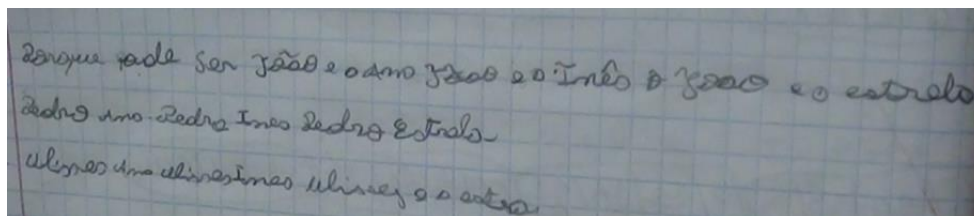 Porque pode ser João e o Ano João e o Inês o João e o estrelo
Pedro Ano. Pedro Ines Pedro Estrelo
Ulisses Ano Ulisses Ines Ulisses e o